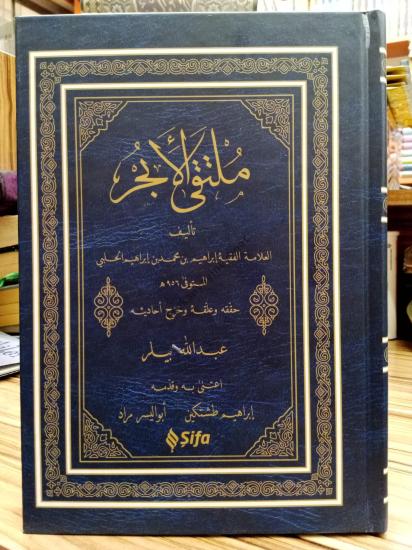 ملتقى الأبحر
تأليف
العلامة الفقيه إبراهيم بن محمد بن إبراهيم الحلبي
المتوفى ٩٥٦ هـ
حققه وعلقه وخرج أحاديثه
عبدالله بيلر
اعتنى به وقدمه
إبراهيم طشتكين أبواليسر مراد
Şifa